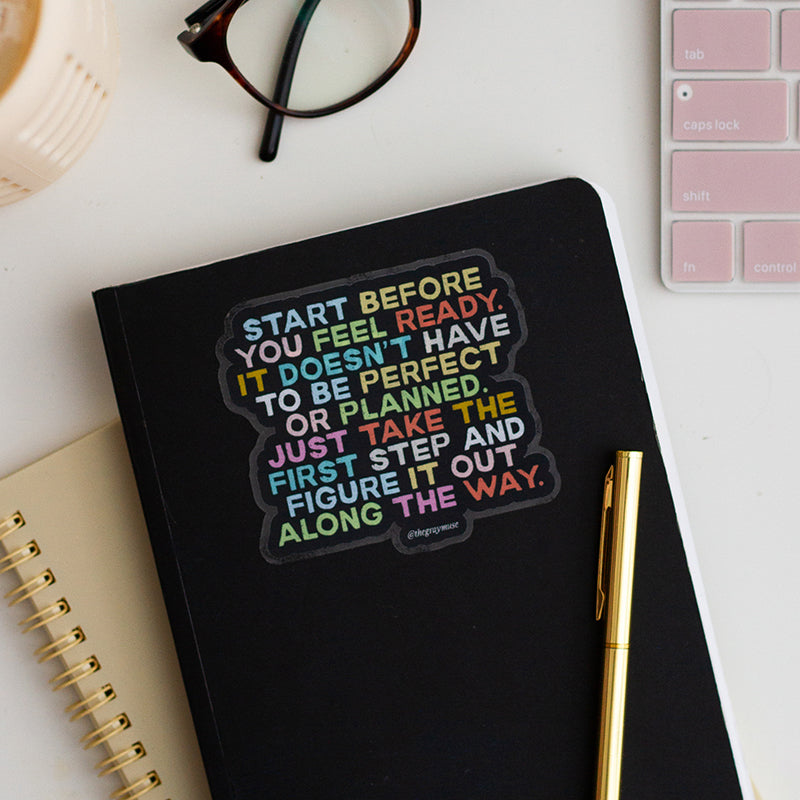 tab
caps lock
shift
fn
control
START BEFORE
YOU FEEL READY.
IT DOESN'T HAVE
TO BE PERFECT
OR PLANNED.
JUST TAKE THE
FIRST STEP AND
FIGURE IT OUT
ALONG THE WAY.
@thegraymuse